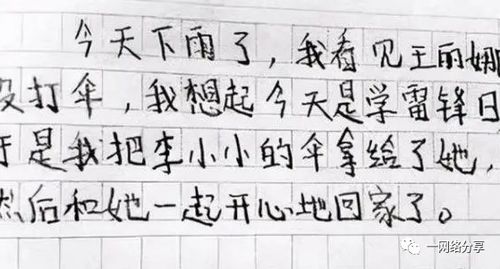 今天下雨了，我看见王的娜
没打伞，我想起今天是学雷锋日
于是我把李小小的伞拿给了她，
然后和她一起开心地回家了。
一网络分享